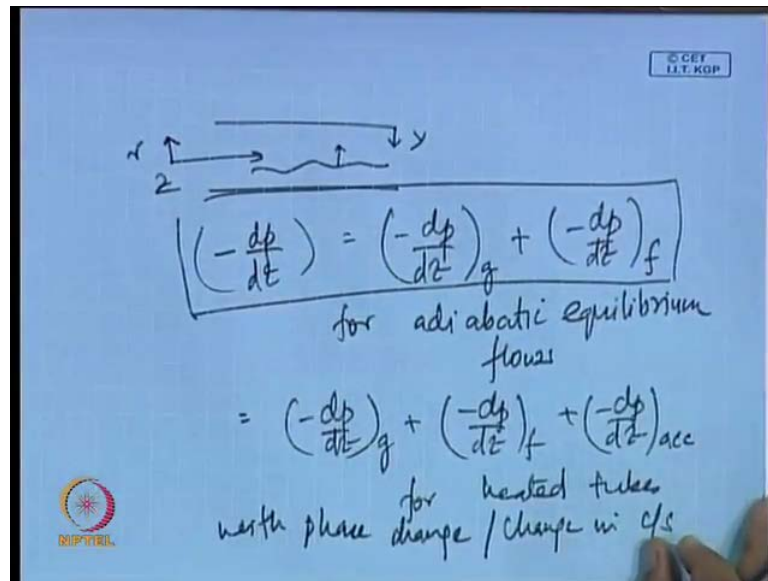 © CET
I.I.T. KGP
r
y
z
(-dp/dz) = (-dp/dz)g + (-dp/dz)f
for adiabatic equilibrium
flows
= (-dp/dz)g + (-dp/dz)f + (-dp/dz)acc
for heated tubes
with phase change / change in c/s
NPTEL